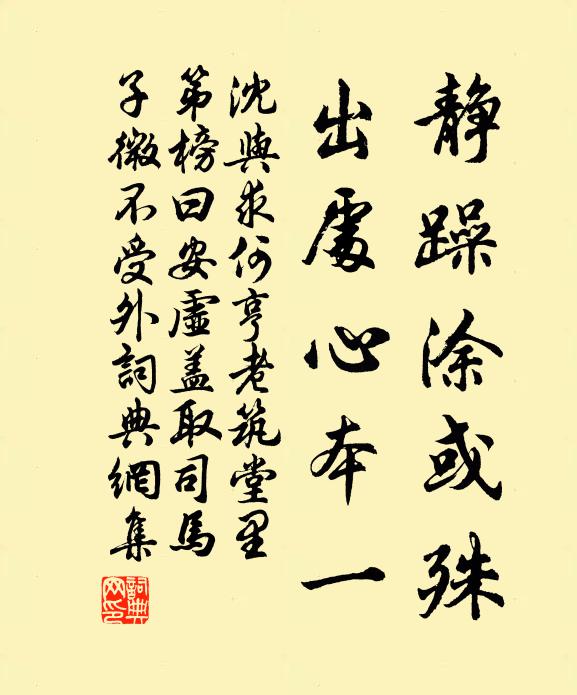 静躁涂或殊
出處心本一
沈與求何亨老筑堂里
第榜曰安虛盖取司馬
子微不受外詞典網集
詞典网印